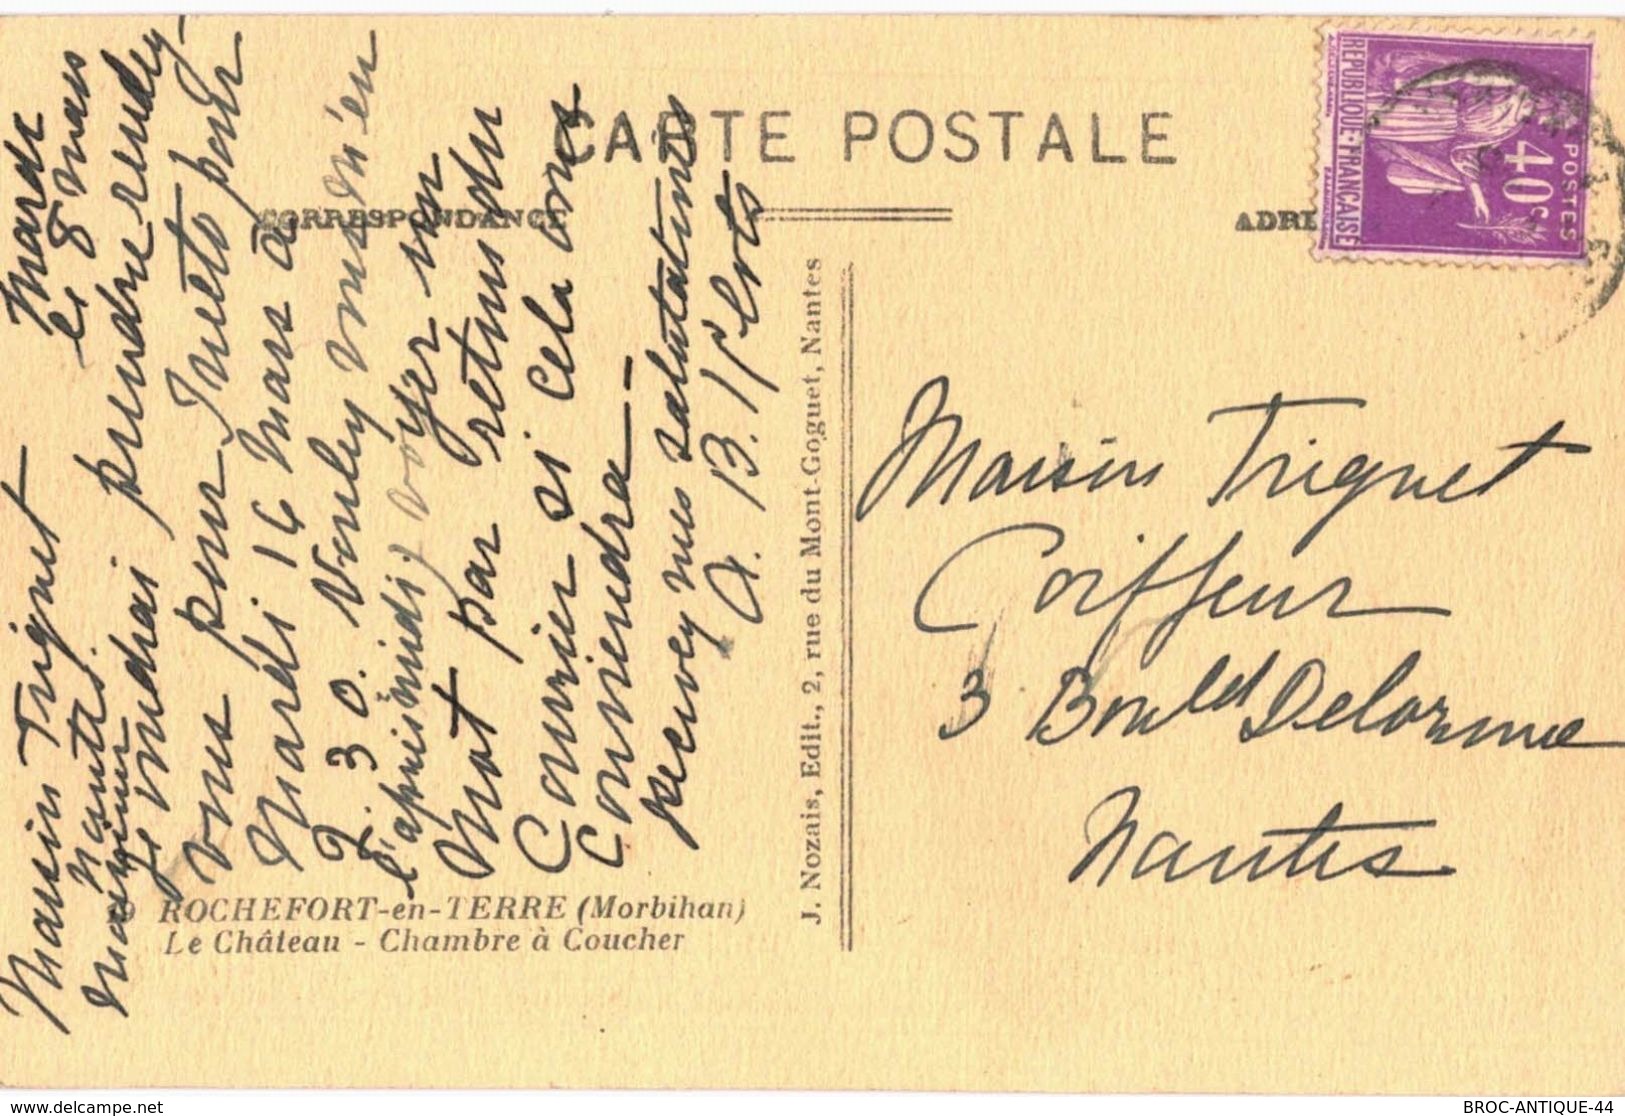 CARTE POSTALE
CORRESPONDANCE
ADR
REPUBLIQUE FRANÇAISE
POSTES
40c
Mardi
le 8 Mars
Maison Triguet
Nantes
je voudrai prendre rendez
vous pour pour
Mardi Mars à
2. 30. Voulez vous m'en
l'après midi)
Mot par retour du
Courrier si Cela vous
Conviendra -
Recevez mes salutations
J. Nozais, Edit., 2, rue du Mont-Goguet, Nantes
9 ROCHEFORT-en-TERRE (Morbihan)
Le Château - Chambre à Coucher
Maison Triguet
Coiffeur
3 Bould Delorme
Nantes
www.delcampe.net
BROC-ANTIQUE-44